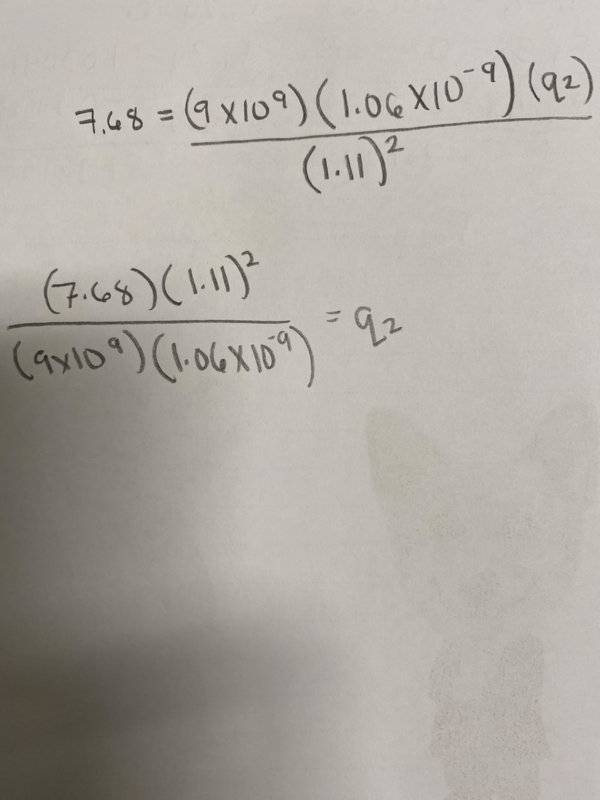 7.68 = (9 X10⁹) (1.06 X10⁻⁹) (q₂)
(1.11)²
(7.68)(1.11)²
(9x10⁹)(1.06X10⁻⁹) = q₂